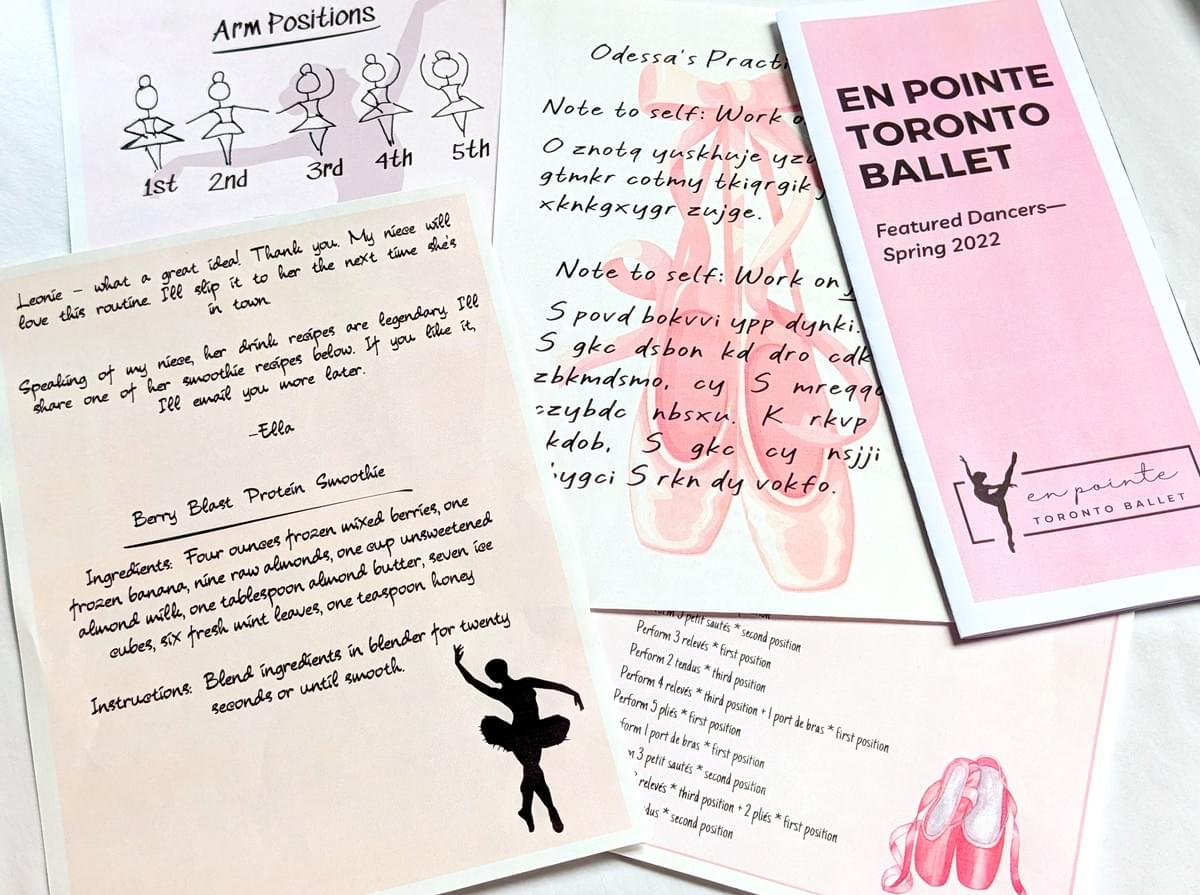 Arm Positions
1st 2nd 3rd 4th 5th
Leonie – what a great idea! Thank you. My niece will
love this routine. I'll slip it to her the next time she's
in town.
Speaking of my niece, her drink recipes are legendary. I'll
share one of her smoothie recipes below. If you like it,
I'll email you more later.
–Ella
Berry Blast Protein Smoothie
Ingredients: Four ounces frozen mixed berries, one
frozen banana, nine raw almonds, one cup unsweetened
almond milk, one tablespoon almond butter, seven ice
cubes, six fresh mint leaves, one teaspoon honey
Instructions: Blend ingredients in blender for twenty
seconds or until smooth.
Odessa's Practi
Note to self: Work o
O znotq yuskhuje yzu
gtmkr cotmy tkiqrgik
xknkgxygr zujge.
Note to self: Work on
S povd bokvvi ypp dynki.
S gkc dsbon kd dro cdk
zbkmdsmo, cy S mreqq
czybdc nbsxu. K rkvp
kdob, S gkc cy nsjji
ygci S rkn dy vokfo.
EN POINTE
TORONTO
BALLET
Featured Dancers—
Spring 2022
en pointe
TORONTO BALLET
form 3 petit sautés * second position
Perform 3 relevés * first position
Perform 2 tendus * third position
Perform 4 relevés * third position + 1 port de bras * first position
Perform 5 pliés * first position
form 1 port de bras * first position
3 petit sautés * second position
relevés * third position + 2 pliés * first position
dus * second position